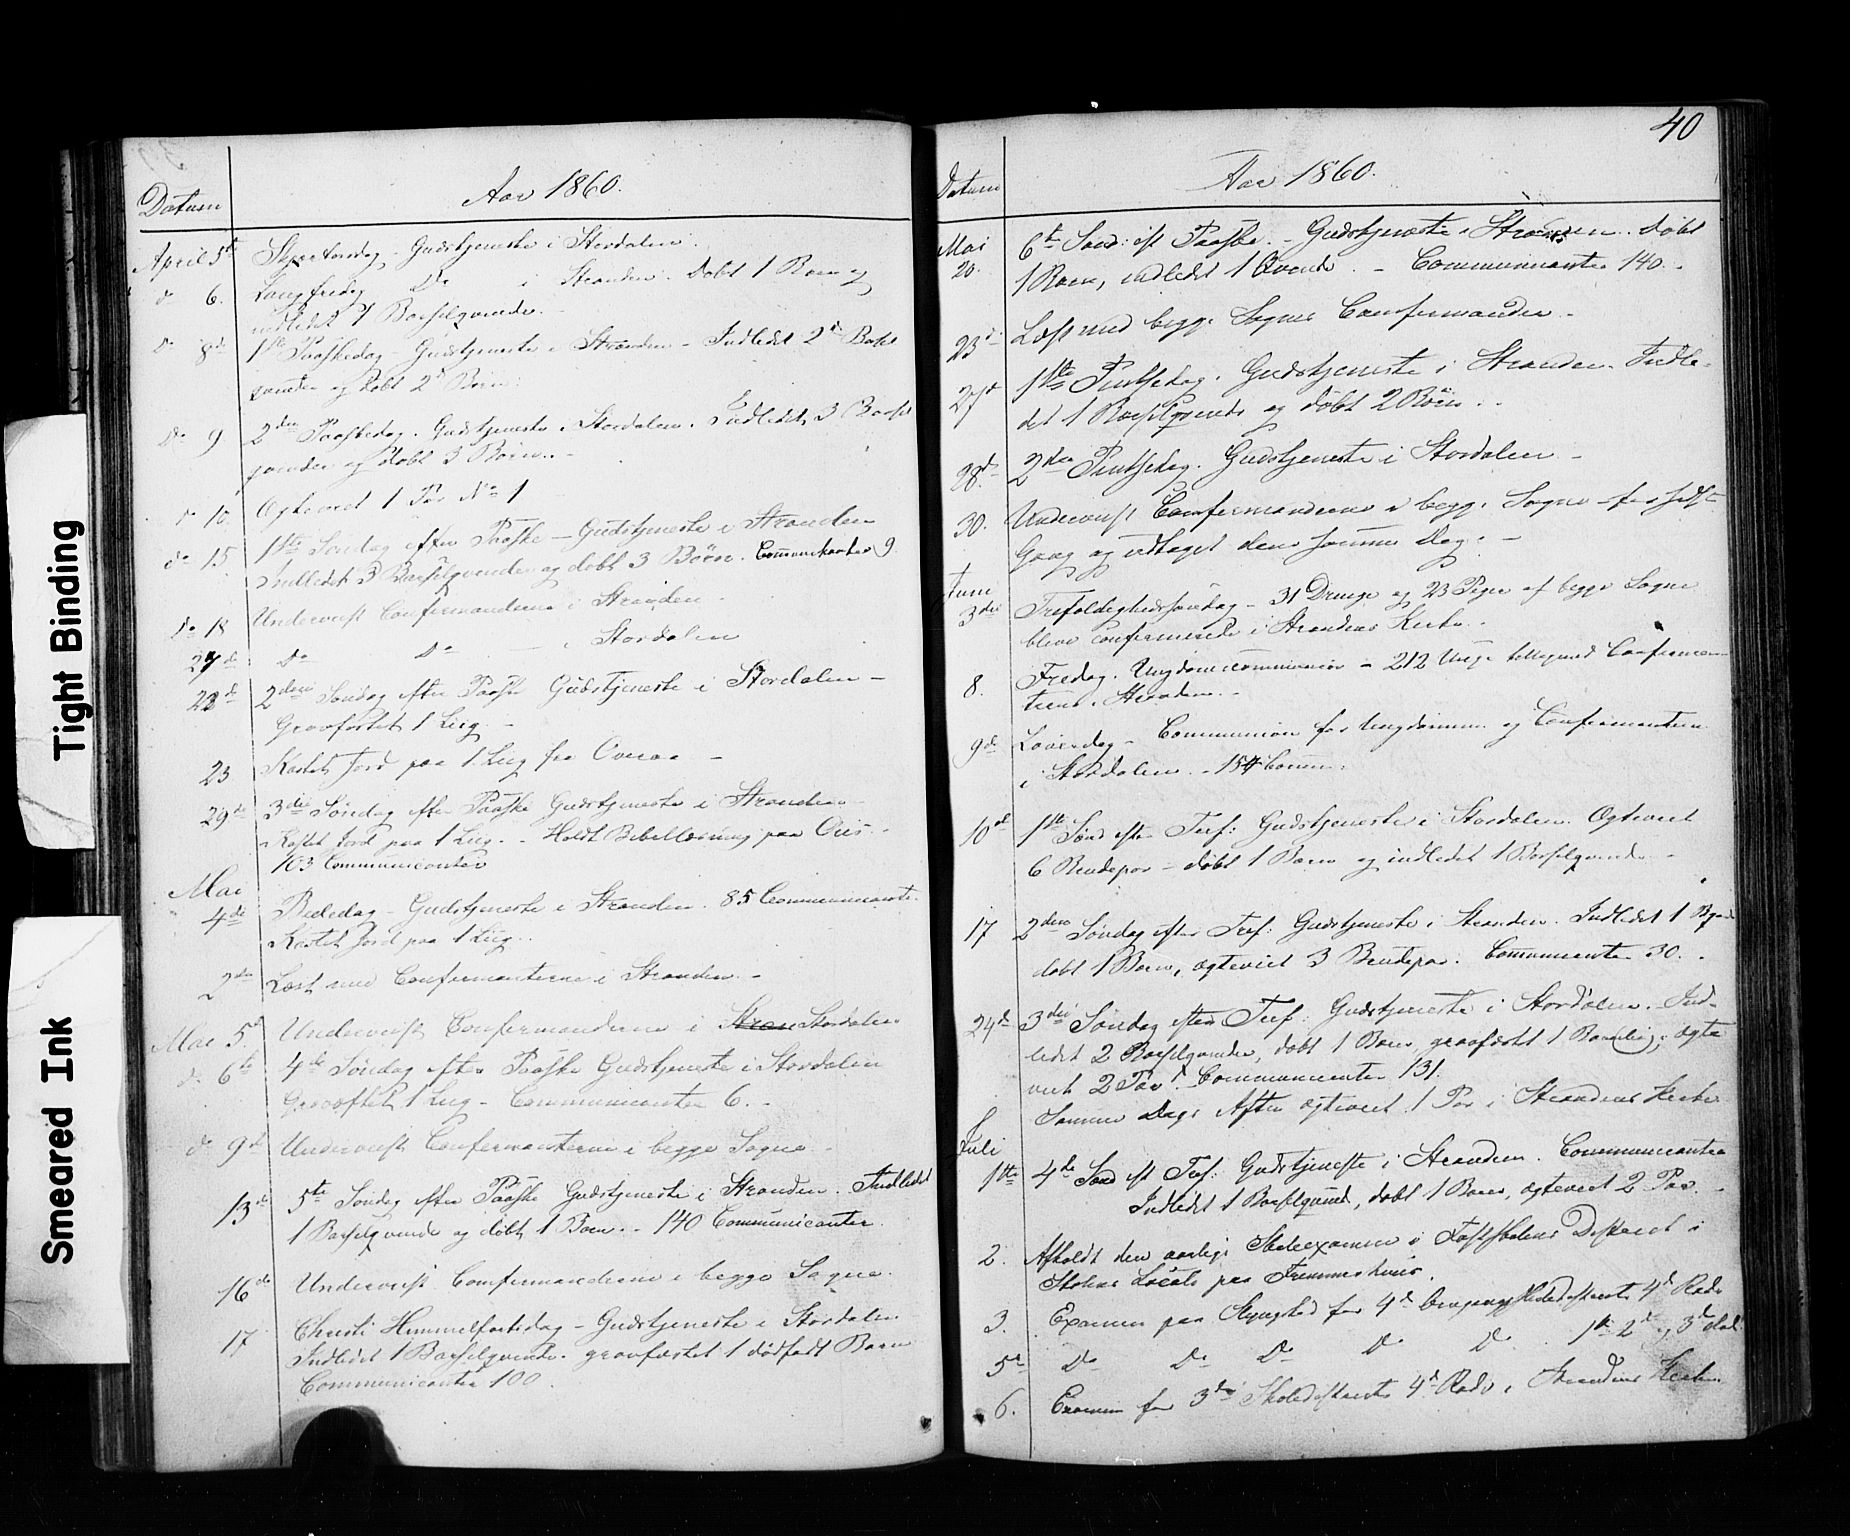 Tight Binding
Smeared Ink
Datum
Aar 1860.
April 5te Skjærtorsdag - Gudstjeneste i Stordalen.
do 6. Langfredag Do i Stranden. Døbt 1 Barn og
indledet 1 Barselqvinde.
Do 8de 1ste Paaskedag - Gudstjeneste i Stranden - Indledet 2de Barsel
qvinder og døbt 2de Børn.
Do 9 2den Paaskedag. Gudstjeneste i Stordalen. Indledet 3 Barsel
qvinder og døbt 3 Børn. -
do 10. Ægteviet 1 Par No 1
do 15 1ste Søndag efter Paaske - Gudstjeneste i Stranden
Indledet 3 Barselqvinder og døbt 3 Børn. Communicanter 9.
Do 18 Underviist Confirmanderne i Stranden -
27de Do Do - i Stordalen
22de 2den Søndag efter Paaske Gudstjeneste i Stordalen -
Gravfæstet 1 Liig. -
23 Kastet Jord paa 1 Liig fra -
29de 3die Søndag efter Paaske Gudstjeneste i Stranden -
Kastet Jord paa 1 Liig. - Holdt Bibellæsning paa
103 Communicanter
Mai
4de Bededag - Gudstjeneste i Stranden. 85 Communicanter.
Kastet Jord paa 1 Liig. -
2den Læst med Confirmanterne i Stranden. -
Mai 5te Underviist Confirmanderne i Stran Stordalen
do 6te 4de Søndag efter Paaske Gudstjeneste i Stordalen
Gravfæstet 1 Liig - Communicanter 6. -
do 9de Underviist Confirmanterne i begge Sogne -
13de 5te Søndag efter Paaske Gudstjeneste i Stranden. Indledet
1 Barselqvinde og døbt 1 Barn. - 140 Communicanter.
16de Underviist Confirmanderne i begge Sogne.
17 Christi Himmelfartsdag - Gudstjeneste i Stordalen
Indledet 1 Barselqvinde. gravfæstet 1 dødfødt Barn
Communicanter 100.
40
Datum
Aar 1860.
Mai
20. 6te Sønd: eft Paaske. - Gudstjeneste i Stranden. døbt
1 Barn, indledet 1 Qvinde. - Communicanter 140. -
23de Læst med begge Sognes Confirmander. -
27de 1ste Pintsedag. Gudstjeneste i Stranden. Indle-
det 1 Barselqvinde og døbt 2 Børn. -
28de 2den Pintsedag. Gudstjeneste i Stordalen -
30. Underviist Confirmanderne i begge Sogne for sidste
Gang og udtaget dem samme Dag. -
Juni
3die Trefoldighedssøndag - 31 Drenge og 23 Piger af begge Sogne
bleve confirmerede i Strandens Kirke.
8. Fredag. Ungdomscommunion - 212 Unge Confirman
terne i Stranden. -
9de Løverdag - Communion for Ungdommen og Confirmanterne
i Stordalen - 154 Comm.
10de 1ste Sønd efter Tref: Gudstjeneste i Stordalen. Ægteviet
6 Brudepar - døbt 1 Barn og indledet 1 Barselqvinde. -
17 2den Søndag efter Tref: Gudstjeneste i Stranden. Indledet 1 Bqvinde
døbt 1 Barn, ægteviet 3 Brudepar. Communicanter 30. -
24de 3die Søndag efter Tref: Gudstjeneste i Stordalen. Ind-
ledet 2 Barselqvinder, døbt 1 Barn, gravfæstet 1 Barnelig; ægte
viet 2 Par. Communicanter 131.
Samme Dags Aften ægteviet 1 Par i Strandens Kirke
Juli
1ste 4de Sønd eft Tref: Gudstjeneste i Stranden. Communicanter
Indledet 1 Barselqvind, døbt 1 Barn, ægteviet 2 Par. -
2. Afholdt den aarlige Skoleexamen i Fastskolens District i
Skolens Locale paa
3. Examen paa for 4de Skoledistricts 4de Rode
5te Do Do Do Do Do 1ste 2den og 3die Rode
6. Examen for 3die Skoledistricts 4de Rode i Strandens Kirke.